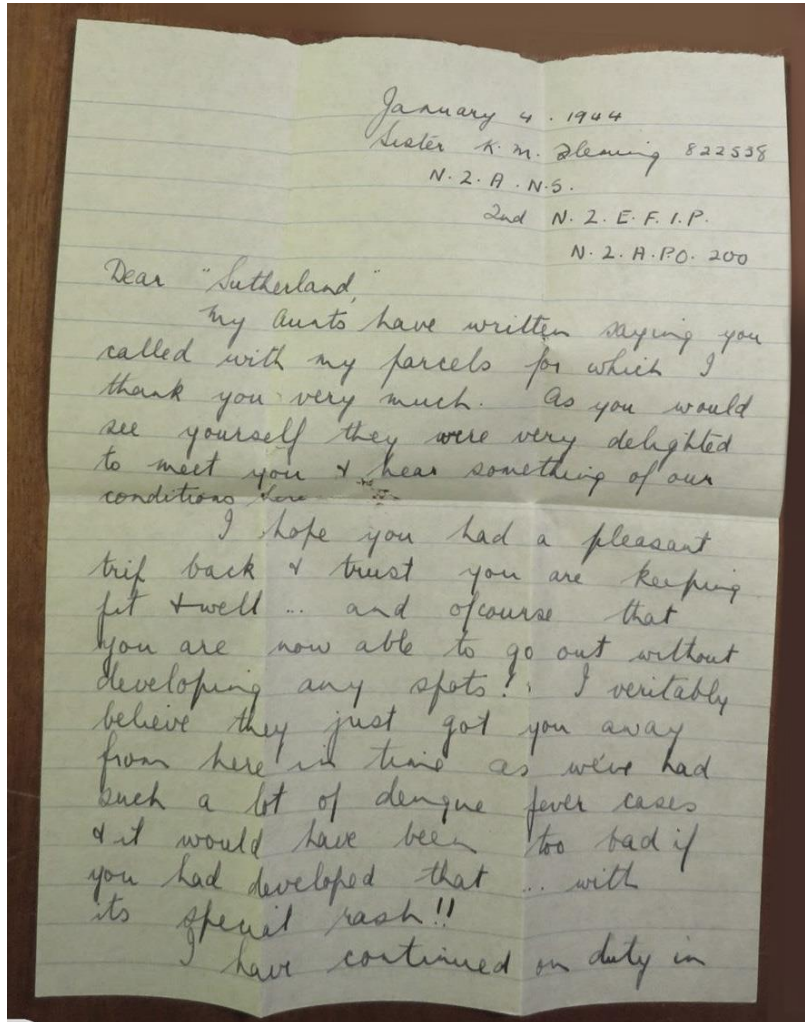 January 4 . 1944
Sister K. M. Fleming 822538
N. Z. A. N. S.
2nd N. Z. E. F. I. P.
N. Z. A. P.O. 200
Dear "Sutherland,"
My Aunts have written saying you
called with my parcels for which I
thank you very much. As you would
see yourself they were very delighted
to meet you & hear something of our
conditions here
I hope you had a pleasant
trip back & trust you are keeping
fit & well ... and ofcourse that
you are now able to go out without
developing any spots! I veritably
believe they just got you away
from here in time as we've had
such a lot of dengue fever cases
& it would have been too bad if
you had developed that ... with
its special rash!!
I have continued on duty in